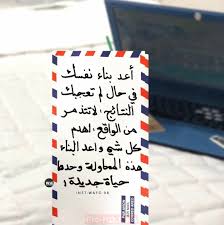 أعد بناء نفسك
في حال لم تعجبك
النتائج، لاتتذمر
من الواقع، اهدم
كل شيء واعد البناء
هذه المحاولة وحدها
حياة جديدة!